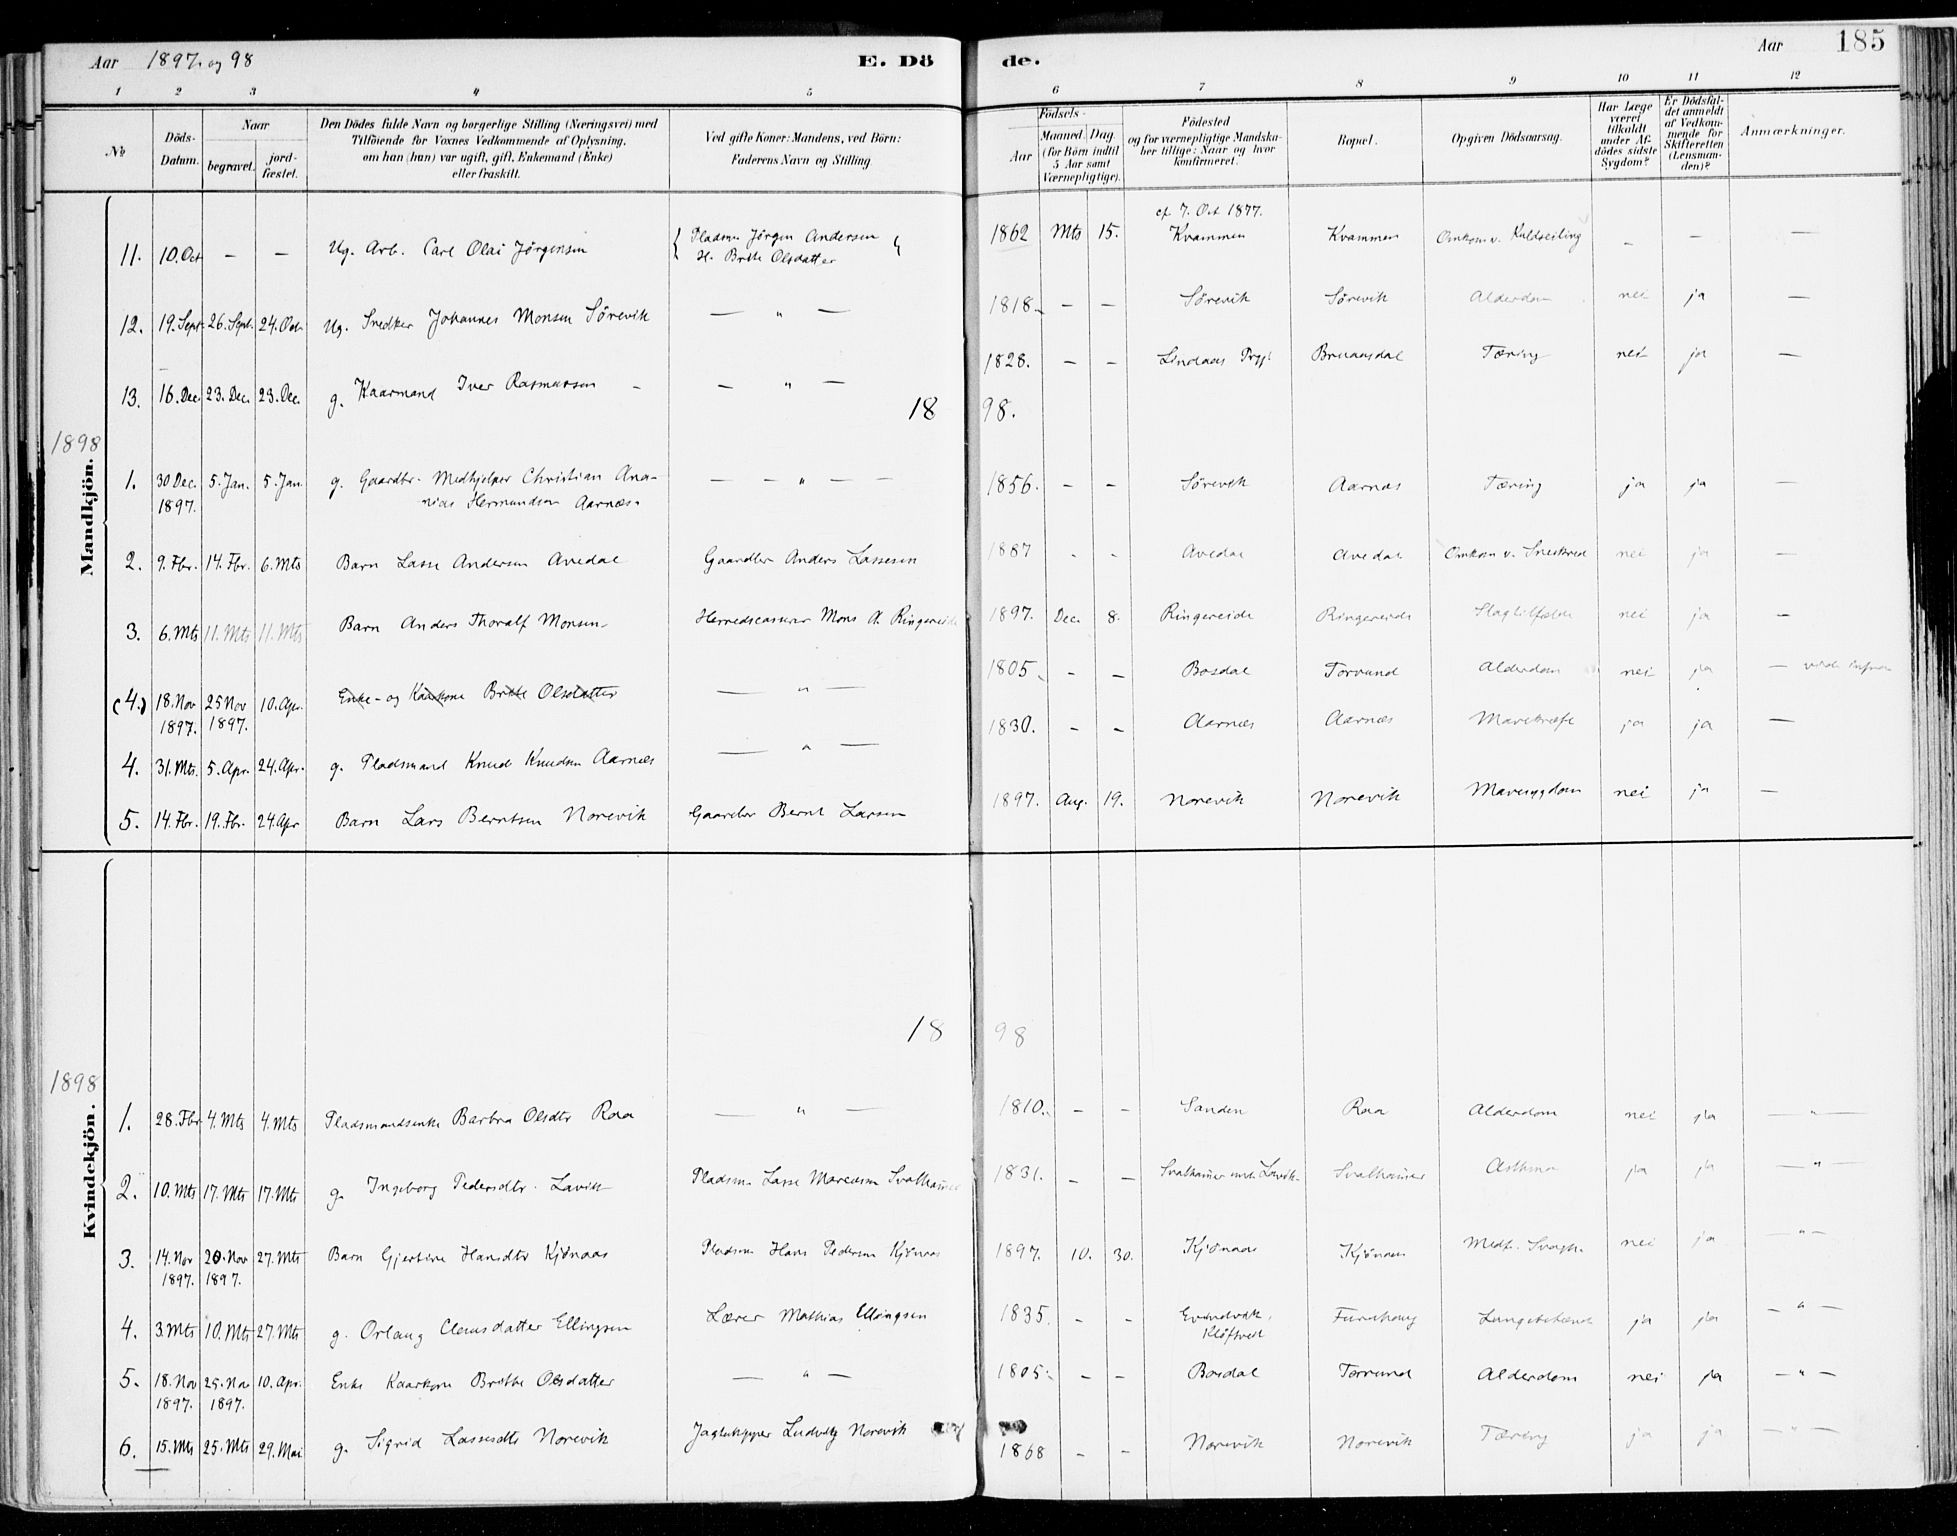 Aar 1897 og 98 E. Dö de. Aar 185
1 2 3 4 5 6 7 8 9 10 11 12
No
Döds-Datum.
Naar
begravet.
jord-fæstet.
Den Dödes fulde Navn og borgerlige Stilling (Næringsvei) med
Tilföiende for Voxnes Vedkommende af Oplysning,
om han (hun) var ugift, gift, Enkemand (Enke)
eller fraskilt.
Ved gifte Koner: Mandens, ved Börn:
Faderens Navn og Stilling.
Födsels-
Aar
Maaned. Dag.
(for Börn indtil
5 Aar samt
Værnepligtige).
Födested
og for værnepligtige Mandska-
ber tillige: Naar og hvor
konfirmeret.
Bopæl.
Opgiven Dödsaarsag.
Har Læge
været
tilkaldt
under Af-
dödes sidste
Sygdom?
Er Dödsfal-
det anmeldt
af Vedkom-
mende for
Skifteretten
(Lensman-
den)?
Anmærkninger.
Mandkjön.
11. 10. Oct — — Ug. Arb. Carl Olai Jörgensen Pladsm. Jörgen Andersen H. Britte Olsdatter 1862 Mts 15. cf 7. Oct 1877. Kvammen Kvammen Omkom v. Kuldseiling — — —
12. 19. Sept. 26. Sept. 24. Oct. Ug. Snedker Johannes Monsen Sörevik — " — 1818. — — Sörevik Sörevik Alderdom nei ja —
13. 16. Dec. 23. Dec. 23. Dec. g. Kaarmand Iver Rasmussen — " — 1828. — — Lindaas Prgj. Bruaasdal Tæring nei ja —
18 98.
1898
1. 30 Dec. 1897. 5. Jan. 5. Jan. g. Gaardbr. Medhjelper Christian Ana-
nias Hermundsen Aarnæs. — — " — — 1856. — — Sörevik Aarnæs Tæring ja ja —
2. 9. Fbr. 14. Fbr. 6. Mts Barn Lasse Andersen Avedal Gaardbr Anders Lassesen 1887 - - Avedal Avedal Omkom v. Sneskred nei ja —
3. 6. Mts 11. Mts 11. Mts Barn Anders Thoralf Monsen Herredscasserer Mons A. Ringereide 1897. Dec. 8. Ringereide Ringereide Slagtilfælde nei ja —
(4.) 18. Nov 1897. 25 Nov 1897. 10. Apr. Enke- og Kaarkone Britte Olsdatter — " — 1805. - - Bosdal Torvund Alderdom nei ja — vide infra
4. 31. Mts. 5. Apr. 24. Apr. g. Pladsmand Knud Knudsen Aarnæs — " — 1830. - - Aarnæs Aarnæs Mavekræft ja ja —
5. 14. Fbr. 19. Fbr. 24. Apr Barn Lars Berntsen Norevik Gaardbr Bernt Larsen 1897. Aug. 19. Norevik Norevik Mavesygdom nei ja —
Kvindekjön.
18 98
1898
1. 28. Fbr 4. Mts 4. Mts Pladsmandsenke Barbra Olsdtr Raa — " — 1810. - - Sanden Raa Alderdom nei ja — " —
2. 10. Mts 17. Mts 17. Mts g. Ingeborg Pedersdtr. Lavik Pladsm. Lasse Marcusen Svalhaimer 1831. — — Svalhaimer under Lavik Svalhaimer Asthma ja ja — " —
3. 14. Nov 1897. 20. Nov 1897. 27. Mts Barn Gjertine Hansdtr Kjönaas Pladsm Hans Pedersen Kjönaas 1897. 10. 30. Kjönaas Kjönaas Medf. Svagh. nei ja — " —
4. 3. Mts 10. Mts 27. Mts g. Orlaug Clausdatter Ellingsen Lærer Mathias Ellingsen 1835. - - Evindvik, Furehaug Lungebetænd. ja ja — " —
5. 18. Nov 1897. 25. Nov 1897. 10. Apr. Enke Kaarkone Britte Olsdatter — " — 1805. - - Bosdal Torvund Alderdom nei ja — " —
6. 15. Mts 25. Mts 29. Mai g. Sigrid Lassesdtr Norevik Ludvig Norevik 1868 - - Norevik Norevik Tæring ja ja — " —